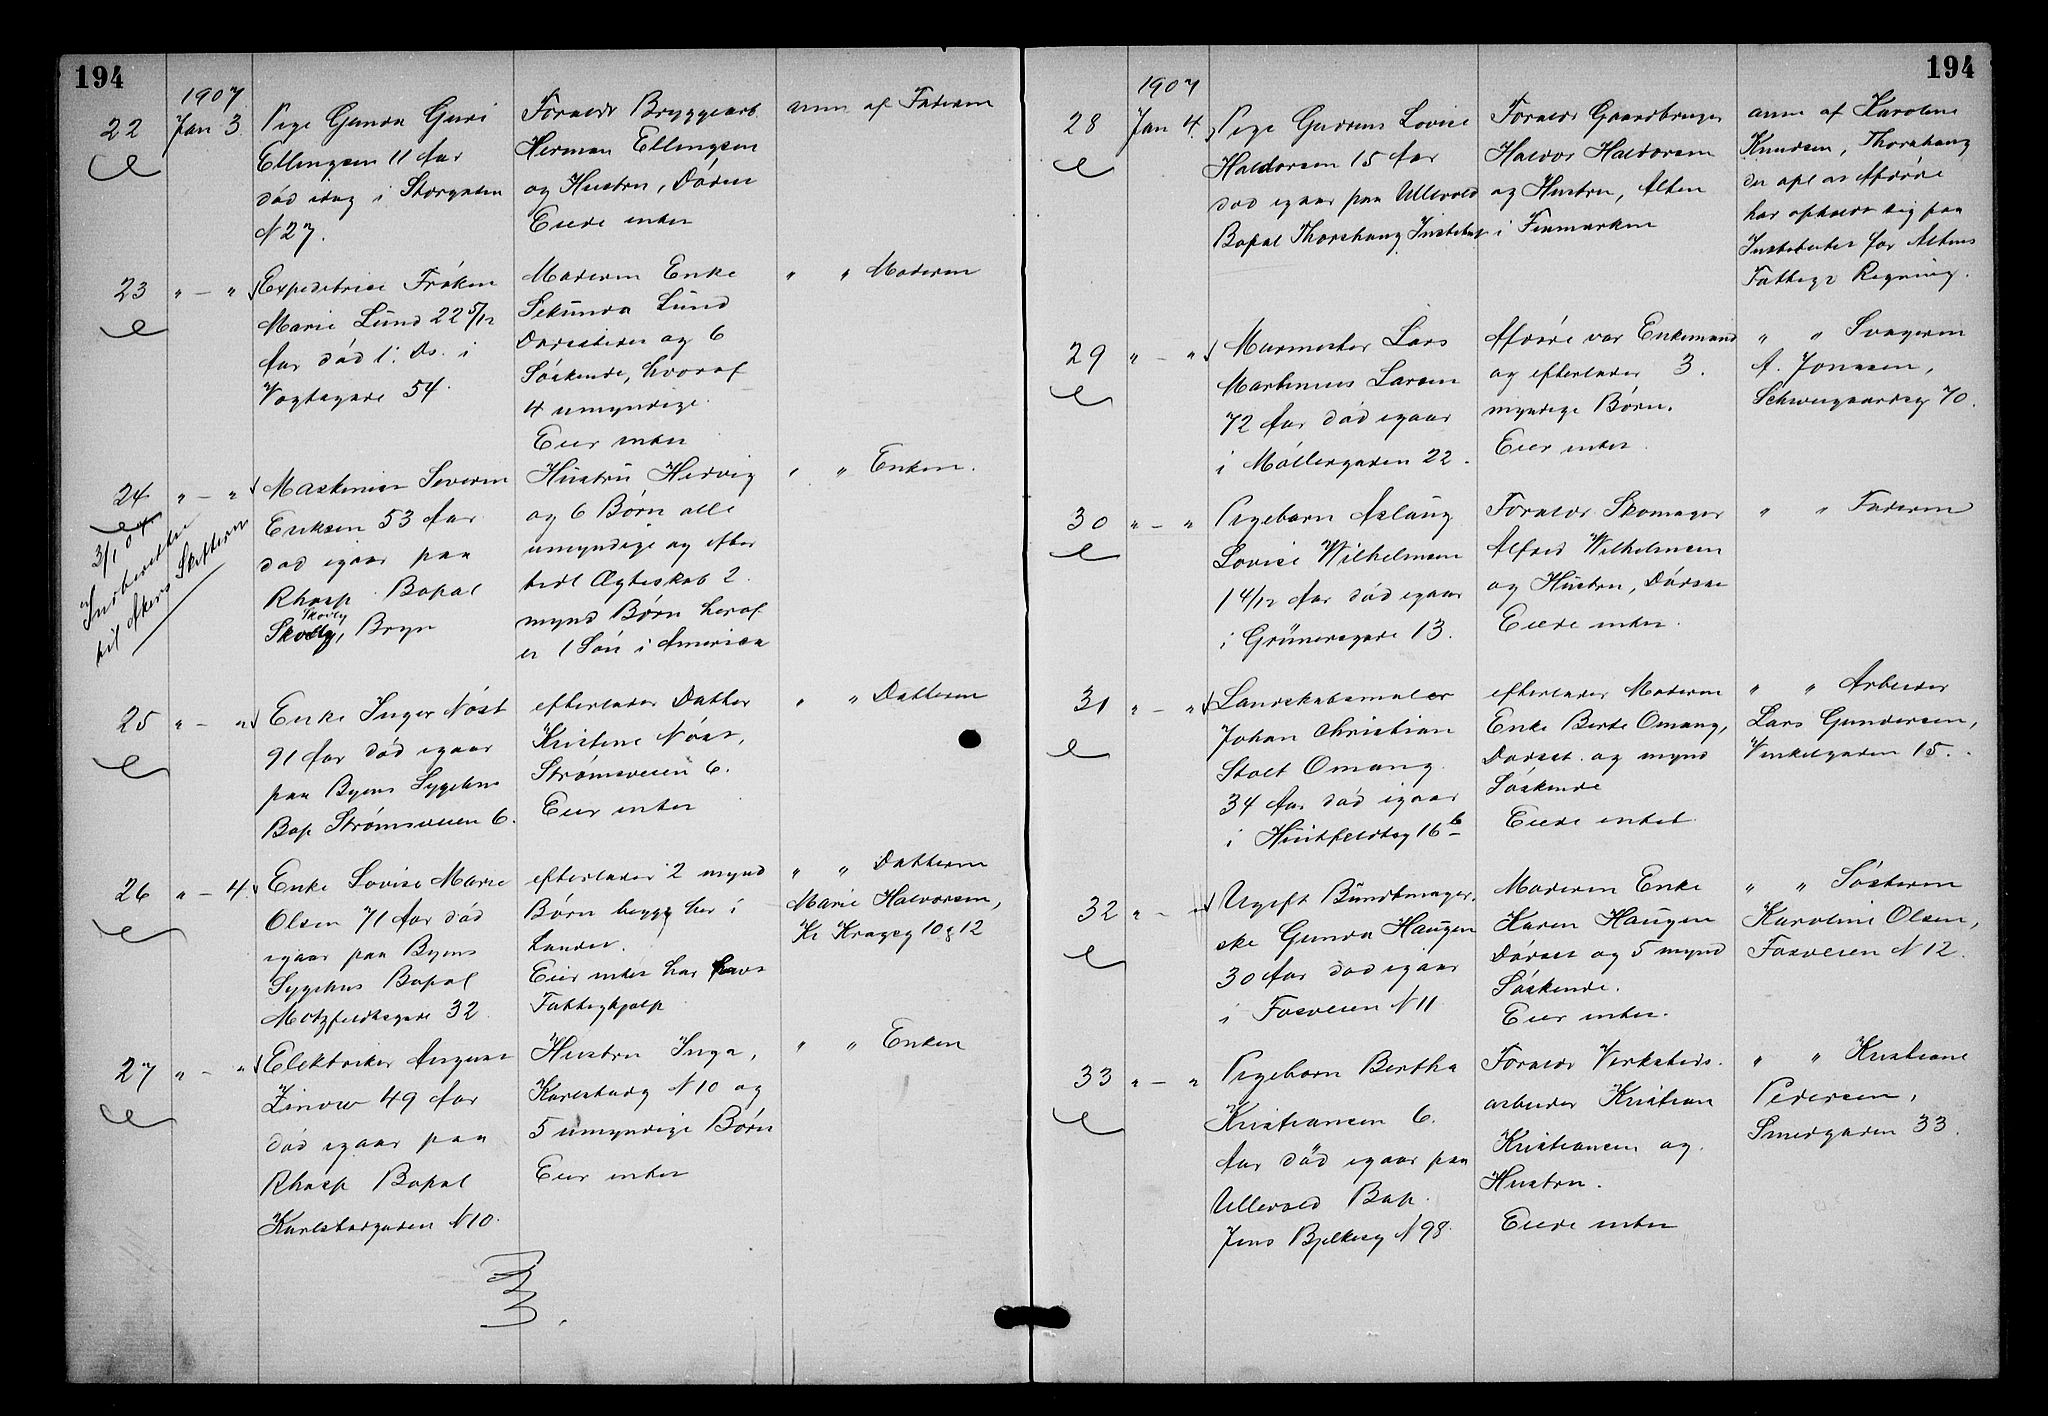 194
1907
22
Jan 3.
Pige Gunda Guri
Ellingsen 11 Aar
død idag i Storgaten
N 27.
Foraeldr Bryggearb.
Herman Ellingsen
og Hustru, Døden
Eiede intet
anm af Faderen
23
" — "
Expeditrice Frøken
Marie Lund 22 5/12
Aar død 1. ds. i
Vogtsgade 54.
Moderen Enke
Sekunda Lund
Daselsteder og 6
Søskende, hvoraf
4 umyndige.
Eier intet
" " Moderen
24
" — "
Maskinist Severin
Eriksen 53 Aar
død igaar paa
Rhosp. Bopæl
Skodby
Bryn
Hustru Hedvig
og 6 Børn alle
umyndige og efter
tidl Ægteskab 2
mynd Børn heraf
er 1 Søn i America
" " Enken.
3/1 07
Indberettet
til Akers Skifteren
25
" — "
Enke Inger Nøst
91 Aar død igaar
paa Byens Sygehus
Bop Strømsveien 6.
efterlader Datter
Kristine Nøst,
Strømsveien 6.
Eier intet
" " Datteren
26
" — 4.
Enke Lovise Marie
Olsen 71 Aar død
igaar paa Byens
Sygehus Bopæl
Motzfeldtsgade 32
efterlader 2 mynd
Børn begge her i
Landet.
Eier intet har havt
Fattighjælp
" " Datteren
Marie Halvorsen,
Kr Kragsg 10 & 12
27
" — "
Elektriker August
Zinow 49 Aar
død igaar paa
Rhosp Bopæl
Karlstadgaden N 10.
Hustru Inga,
Karlstadg N 10 og
5 umyndige Børn
Eier intet
" " Enken
194
1907
28
Jan 4.
Pige Gudrun Lovise
Haldorsen 15 Aar
død igaar paa Ullevold
Bopæl Thorshaug Institut
Foraeldr Gaardbruger
Haldor Haldorsen
og Hustru, Alten
i Finmarken
anm af Karoline
Knudsen, Thorshaug
der opl at Afdøde
har opholdt sig paa
Institutet for Altens
Fattigv Regning.
29
" — "
Murmester Lars
Martinius Larsen
72 Aar død igaar
i Møllergaden 22.
Afdøde var Enkemand
og efterlader 3.
myndige Børn.
Eier intet.
" " Svogeren
A. Jonassen,
Schweigaardsg 70.
30
" — "
Pigebarn Aslaug
Lovise Wilhelmsen
1 4/12 Aar død igaar
i Grünersgade 13.
Foraeldr Skomager
Alfred Wilhelmsen
og Hustru, Dørsat
Eiede intet.
" " Faderen
31
" — "
Landskabsmaler
Johan Christian
Stolt Omang
34 Aar død igaar
i Huitfeldtsg 16 b
efterlader Moderen
Enke Berte Omang,
Dørsat. og mynd
Søskende
Eiede intet
" " Arbeider
Lars Gundersen,
Vinkelgaden 15.
32
" — "
Ugift Buntmager-
ske Gunda Haugen
30 Aar død igaar
i Fosveien N 11
Moderen Enke
Karen Haugen
Dørsat og 5 mynd
Søskende.
Eier intet.
" " Søsteren
Karoline Olsen,
Fosveien N 12.
33
" — "
Pigebarn Bertha
Kristiansen 6.
Aar død igaar paa
Ullevold Bop.
Jens Bjelkesg N 98.
Foraeldr Verksteds-
arbeider Kristian
Kristiansen og
Hustru.
Eiede intet
" " Kristiane
Pedersen,
Smedgaden 33.